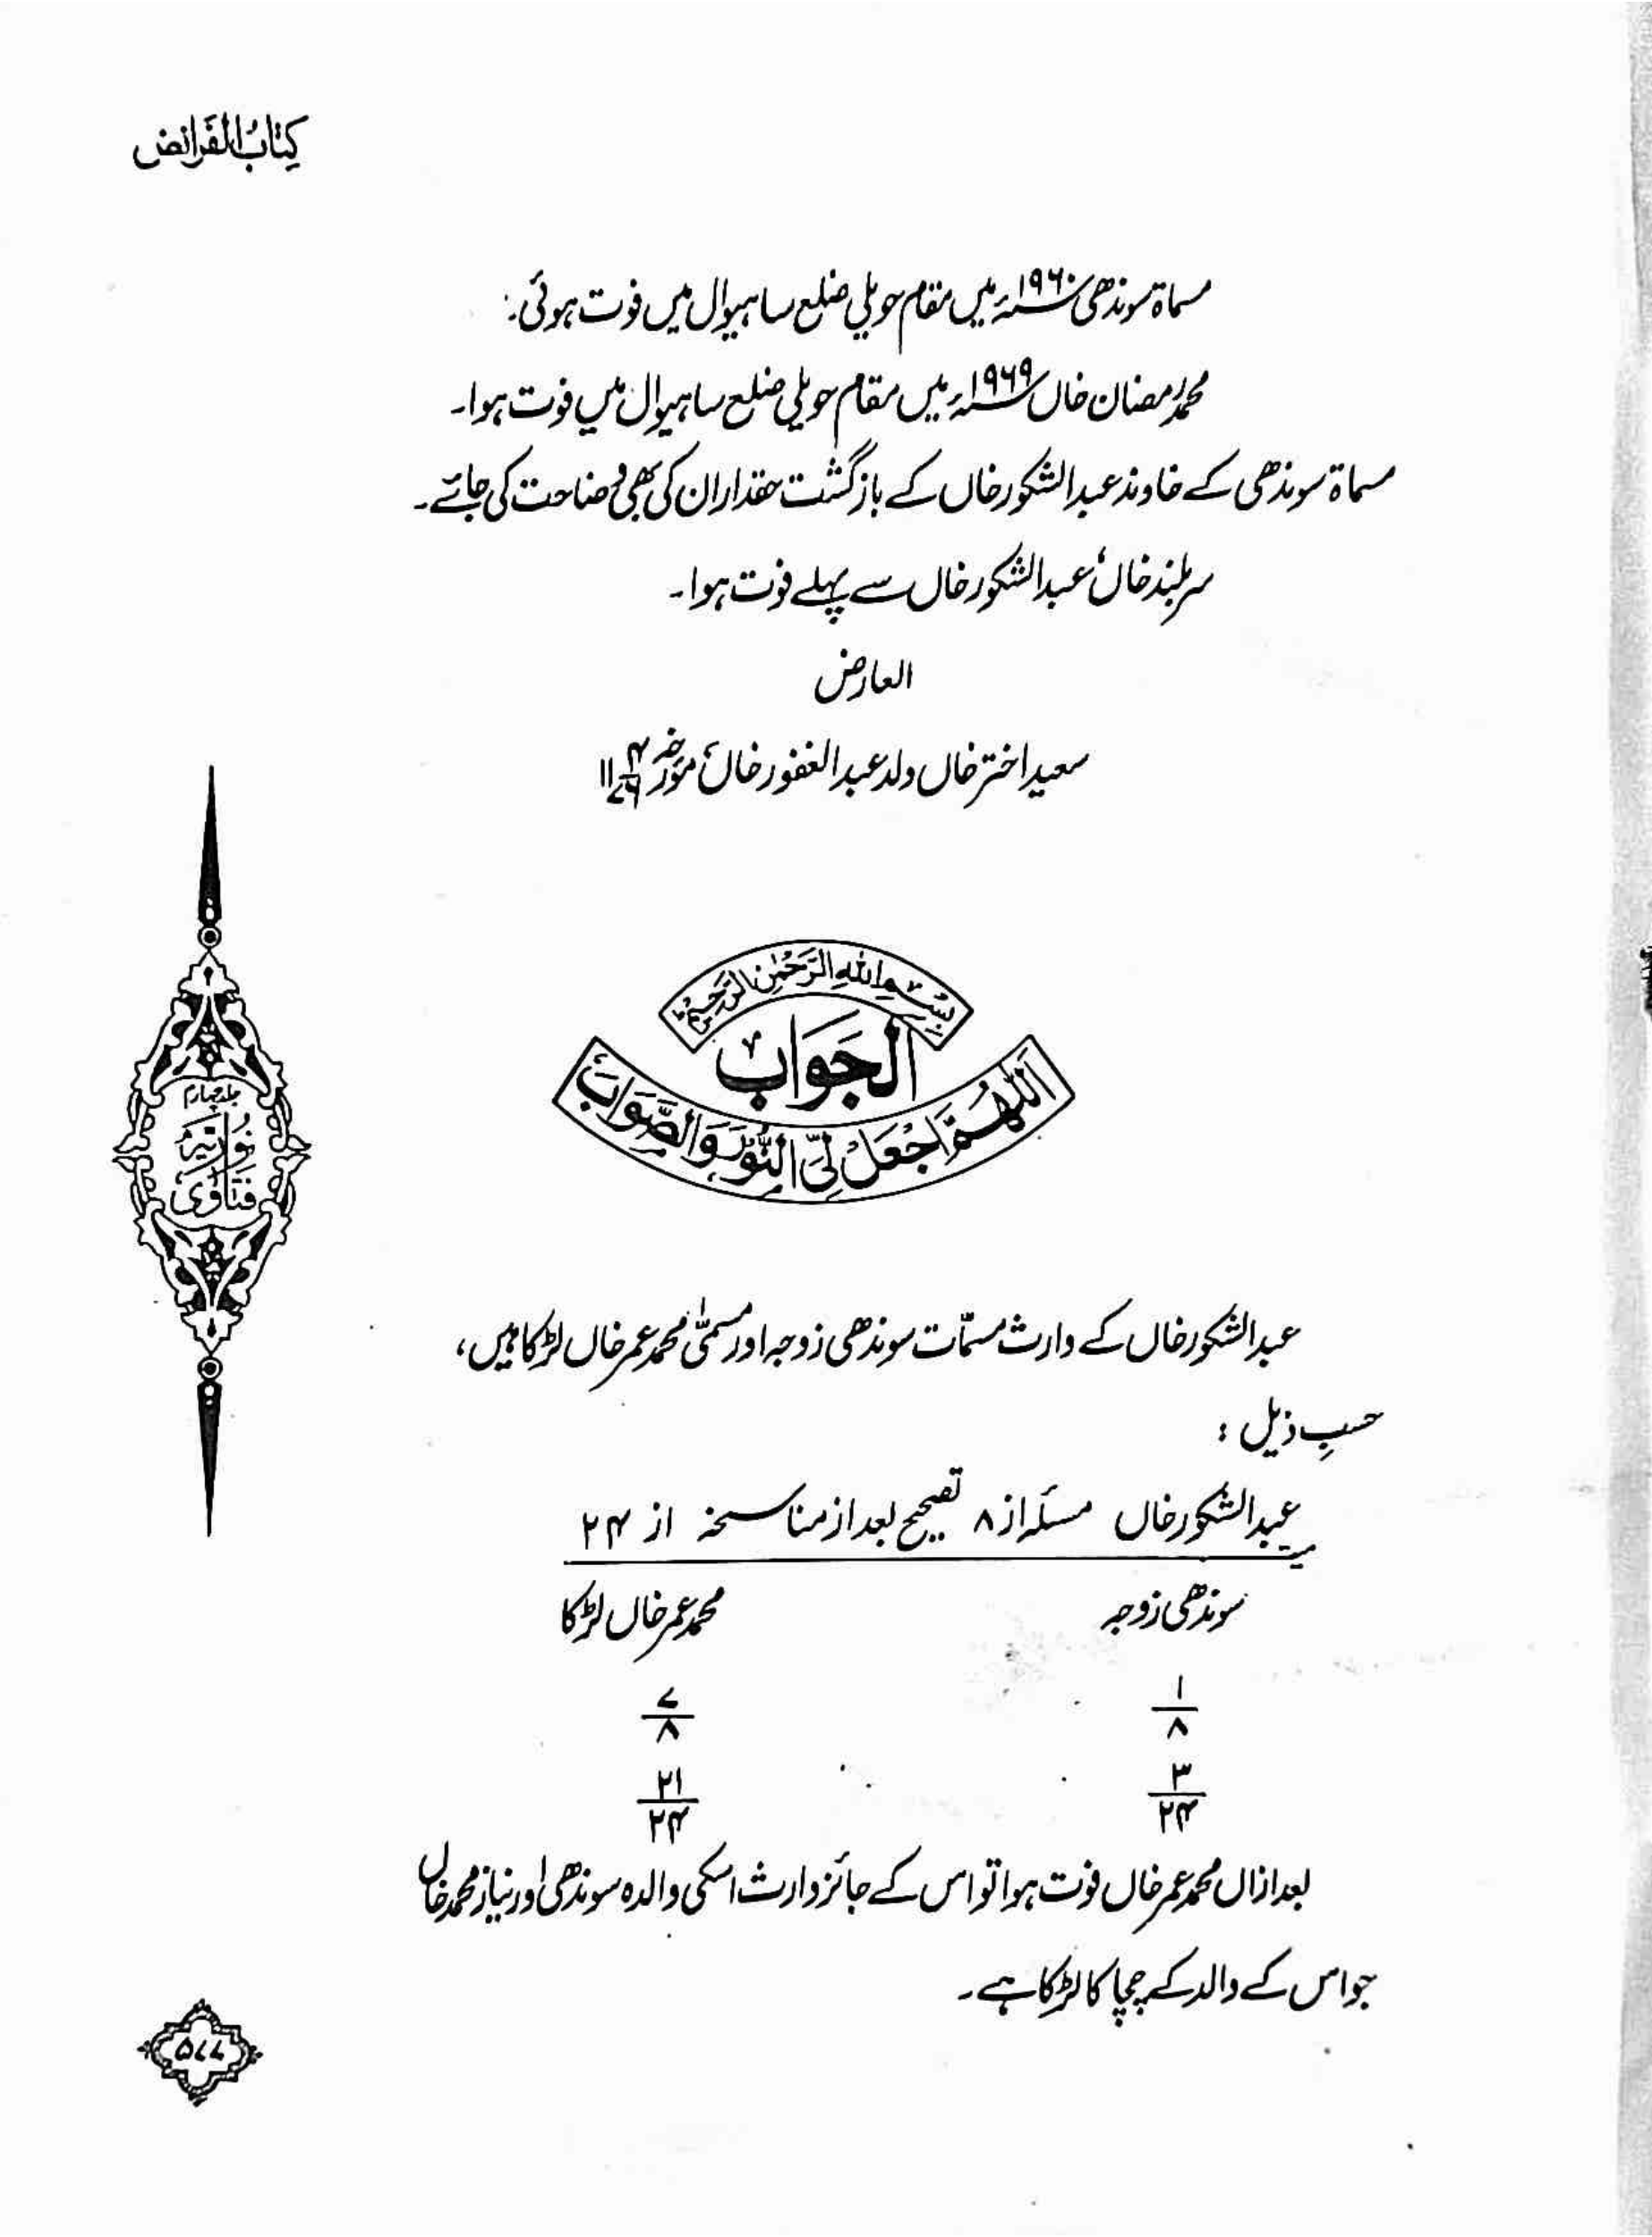 كِتابُ الفَرائض
مسماۃ سوندھی ۱۹۶۰ء میں مقام حویلی ضلع ساہیوال میں فوت ہوئی۔
محمد رمضان خاں ۱۹۶۹ء میں مقام حویلی ضلع ساہیوال میں فوت ہوا۔
مسماۃ سوندھی کے خاوند عبدالشکور خاں کے بازگشت حقداران کی بھی وضاحت کی جائے۔
سربلند خاں، عبدالشکور خاں سے پہلے فوت ہوا۔
العارض
سعید اختر خاں ولد عبدالغفور خاں، مؤرخہ
بِسْمِ اللهِ الرَّحْمٰنِ الرَّحِيْمِ
اَلْجَوَابُ
اَللّٰهُمَّ اجْعَلْ لِّيَ النُّوْرَ وَالصَّوَابَ
جلد چہارم
نُورِیَّہ
فتاوٰی
عبدالشکور خاں کے وارث مسمّات سوندھی زوجہ اور مسمّیٰ محمد عمر خاں لڑکا ہیں،
حسبِ ذیل :
عبدالشکور خاں مسئلہ از ۸ تصحیح بعد از مناسخہ از ۲۴
سوندھی زوجہ محمد عمر خاں لڑکا
۱/۸ ۷/۸
۳/۲۴ ۲۱/۲۴
بعد ازاں محمد عمر خاں فوت ہوا تو اس کے جائز وارث اسکی والدہ سوندھی اور نیاز محمد خاں
جو اس کے والد کے چچا کا لڑکا ہے۔
۵۷۷